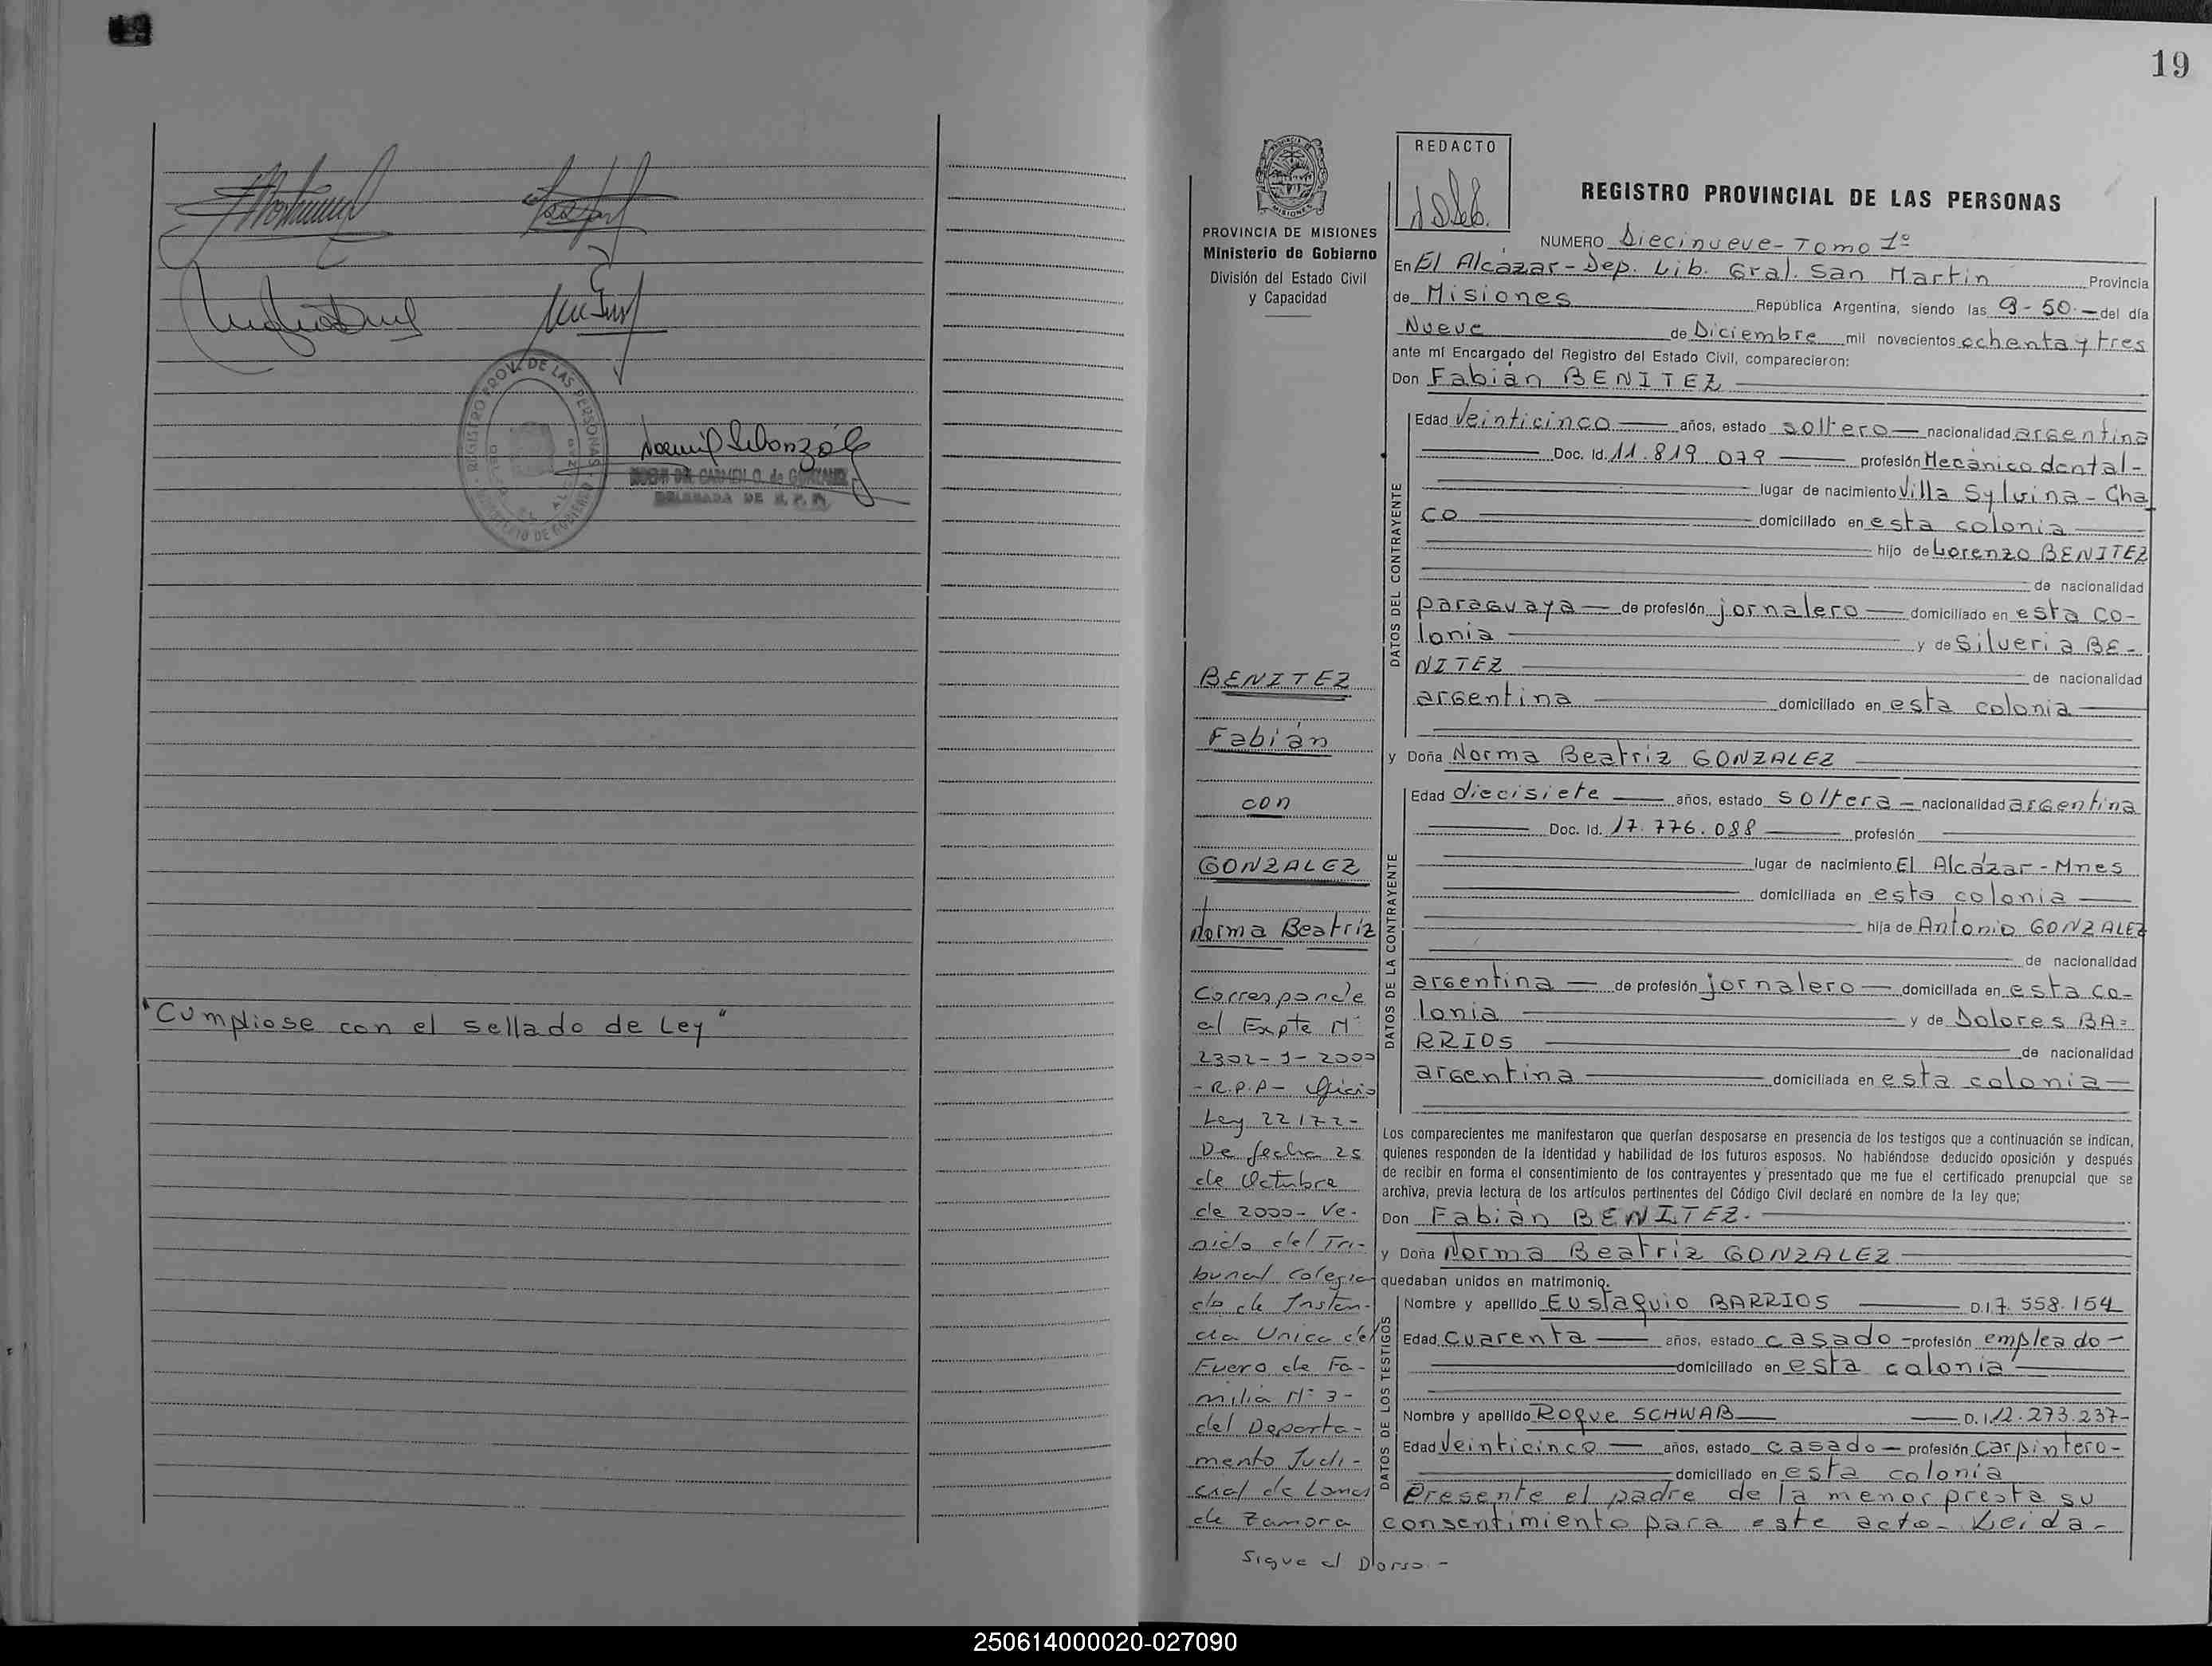 19
REGISTRO PROV. DE LAS PERSONAS
NOEMI DEL CARMEN O. de GONZALEZ
DELEGADA DE R. P. P.
"Cumpliose con el sellado de Ley"
REDACTO
MISIONES
PROVINCIA DE MISIONES
Ministerio de Gobierno
División del Estado Civil
y Capacidad
BENITEZ
Fabián
con
GONZALEZ
Norma Beatriz
Corresponde
al Expte Nº
2302-J-2000
- R.P.P- Oficio
Ley 22172-
De fecha 25
de Octubre
de 2000- Ve-
nido del Tri-
bunal Colegia
do de Instan-
cia Unica del
Fuero de Fa-
milia Nº 3-
del Departa-
mento Judi-
cial de Lomas
de Zamora
Sigue al Dorso.-
REGISTRO PROVINCIAL DE LAS PERSONAS
NUMERO Diecinueve- Tomo 1º
En El Alcázar - Dep. Lib. Gral. San Martin Provincia
de Misiones República Argentina, siendo las 9-50.- del día
Nueve de Diciembre mil novecientos ochenta y tres
ante mí Encargado del Registro del Estado Civil, comparecieron:
Don Fabián BENITEZ
DATOS DEL CONTRAYENTE
Edad Veinticinco años, estado soltero nacionalidad argentina
Doc. Id. 11.819.079 profesión Mecánico dental-
lugar de nacimiento Villa Sylvina - Cha
co domiciliado en esta colonia
hijo de Lorenzo BENITEZ
de nacionalidad
paraguaya de profesión jornalero domiciliado en esta co-
lonia y de Silveria BE-
NITEZ de nacionalidad
argentina domiciliado en esta colonia
y Doña Norma Beatriz GONZALEZ
DATOS DE LA CONTRAYENTE
Edad diecisiete años, estado soltera nacionalidad argentina
Doc. Id. 17.776.088 profesión
lugar de nacimiento El Alcázar - Mnes
domiciliada en esta colonia
hija de Antonio GONZALEZ
de nacionalidad
argentina de profesión jornalero domiciliada en esta co-
lonia y de Dolores BA-
RRIOS de nacionalidad
argentina domiciliada en esta colonia
Los comparecientes me manifestaron que querían desposarse en presencia de los testigos que a continuación se indican,
quienes responden de la identidad y habilidad de los futuros esposos. No habiéndose deducido oposición y después
de recibir en forma el consentimiento de los contrayentes y presentado que me fue el certificado prenupcial que se
archiva, previa lectura de los artículos pertinentes del Código Civil declaré en nombre de la ley que;
Don Fabián BENITEZ.
y Doña Norma Beatriz GONZALEZ
quedaban unidos en matrimonio.
DATOS DE LOS TESTIGOS
Nombre y apellido Eustaquio BARRIOS D.I 7.558.154
Edad Cuarenta años, estado casado profesión empleado-
domiciliado en esta colonia
Nombre y apellido Roque SCHWAB D.I 12.273.237-
Edad Veinticinco años, estado casado profesión carpintero-
domiciliado en esta colonia
Presente el padre de la menor presta su
consentimiento para este acto- Leida-
250614000020-027090